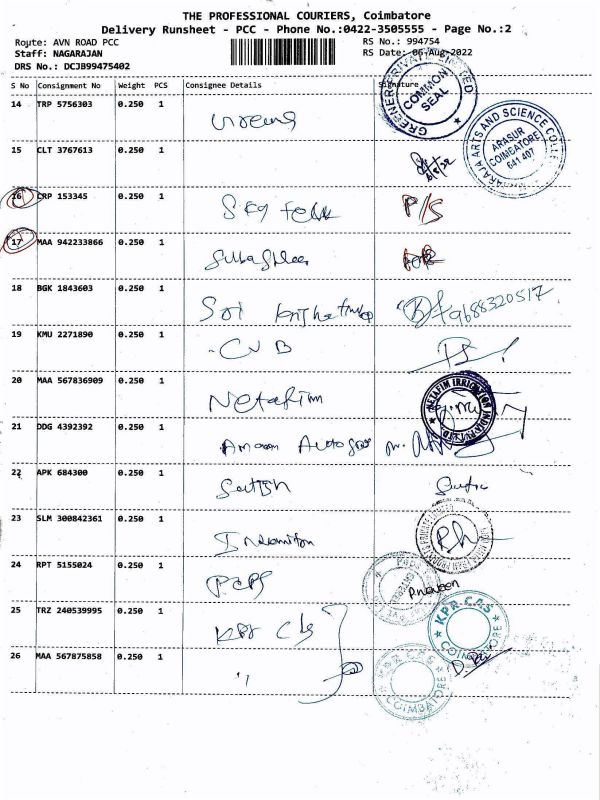 THE PROFESSIONAL COURIERS, Coimbatore
Delivery Runsheet - PCC - Phone No.:0422-3505555 - Page No.:2
Route: AVN ROAD PCC RS No.: 994754
Staff: NAGARAJAN RS Date: 06-Aug-2022
DRS No.: DCJB99475402
S No Consignment No Weight PCS Consignee Details Signature
GREENERA PRIVATE LIMITED
COMMON SEAL
14 TRP 5756303 0.250 1
ARTS AND SCIENCE
ARASUR
COIMBATORE
641 407
15 CLT 3767613 0.250 1
16 CRP 153345 0.250 1 P/S
17 MAA 942233866 0.250 1
18 BGK 1843603 0.250 1 Sri 9688320517
19 KMU 2271890 0.250 1 CUB
20 MAA 567836909 0.250 1 Netafim
NETAFIM IRRIGATION INDIA PVT LTD
21 DDG 4392392 0.250 1
22 APK 684300 0.250 1 Satish
23 SLM 300842361 0.250 1
24 RPT 5155024 0.250 1 P.naveen
25 TRZ 240539995 0.250 1 KPR CAS
K.P.R.C.A.S
COIMBATORE
26 MAA 567875858 0.250 1 "
K.P.R.C.A.S
COIMBATORE